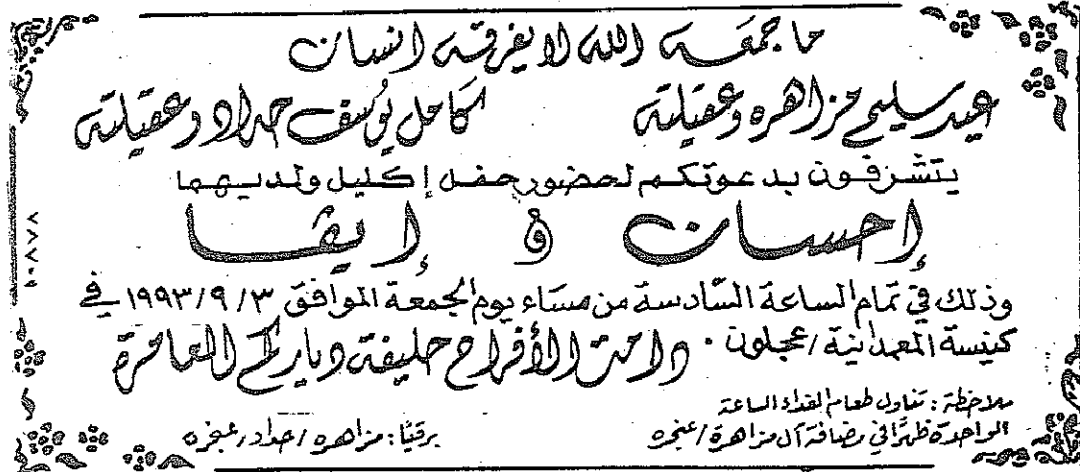 ما جمعه الله لا يفرقه انسان
عيد سليم مزاهره وعقيلته
كامل يوسف حداد وعقيلته
يتشرفون بدعوتكم لحضور حفل إكليل ولديهما
إحسان و إيڤا
وذلك في تمام الساعة السادسة من مساء يوم الجمعة الموافق ١٩٩٣/٩/٣ في
كنيسة المعمدانية / عجلون .
دامت الأفراح حليفة دياركم العامرة
ملاحظة : تناول طعام الغداء الساعة
الواحدة ظهرًا في مضافة آل مزاهرة / عنجره
برقيًا : مزاهره / حداد / عنجره